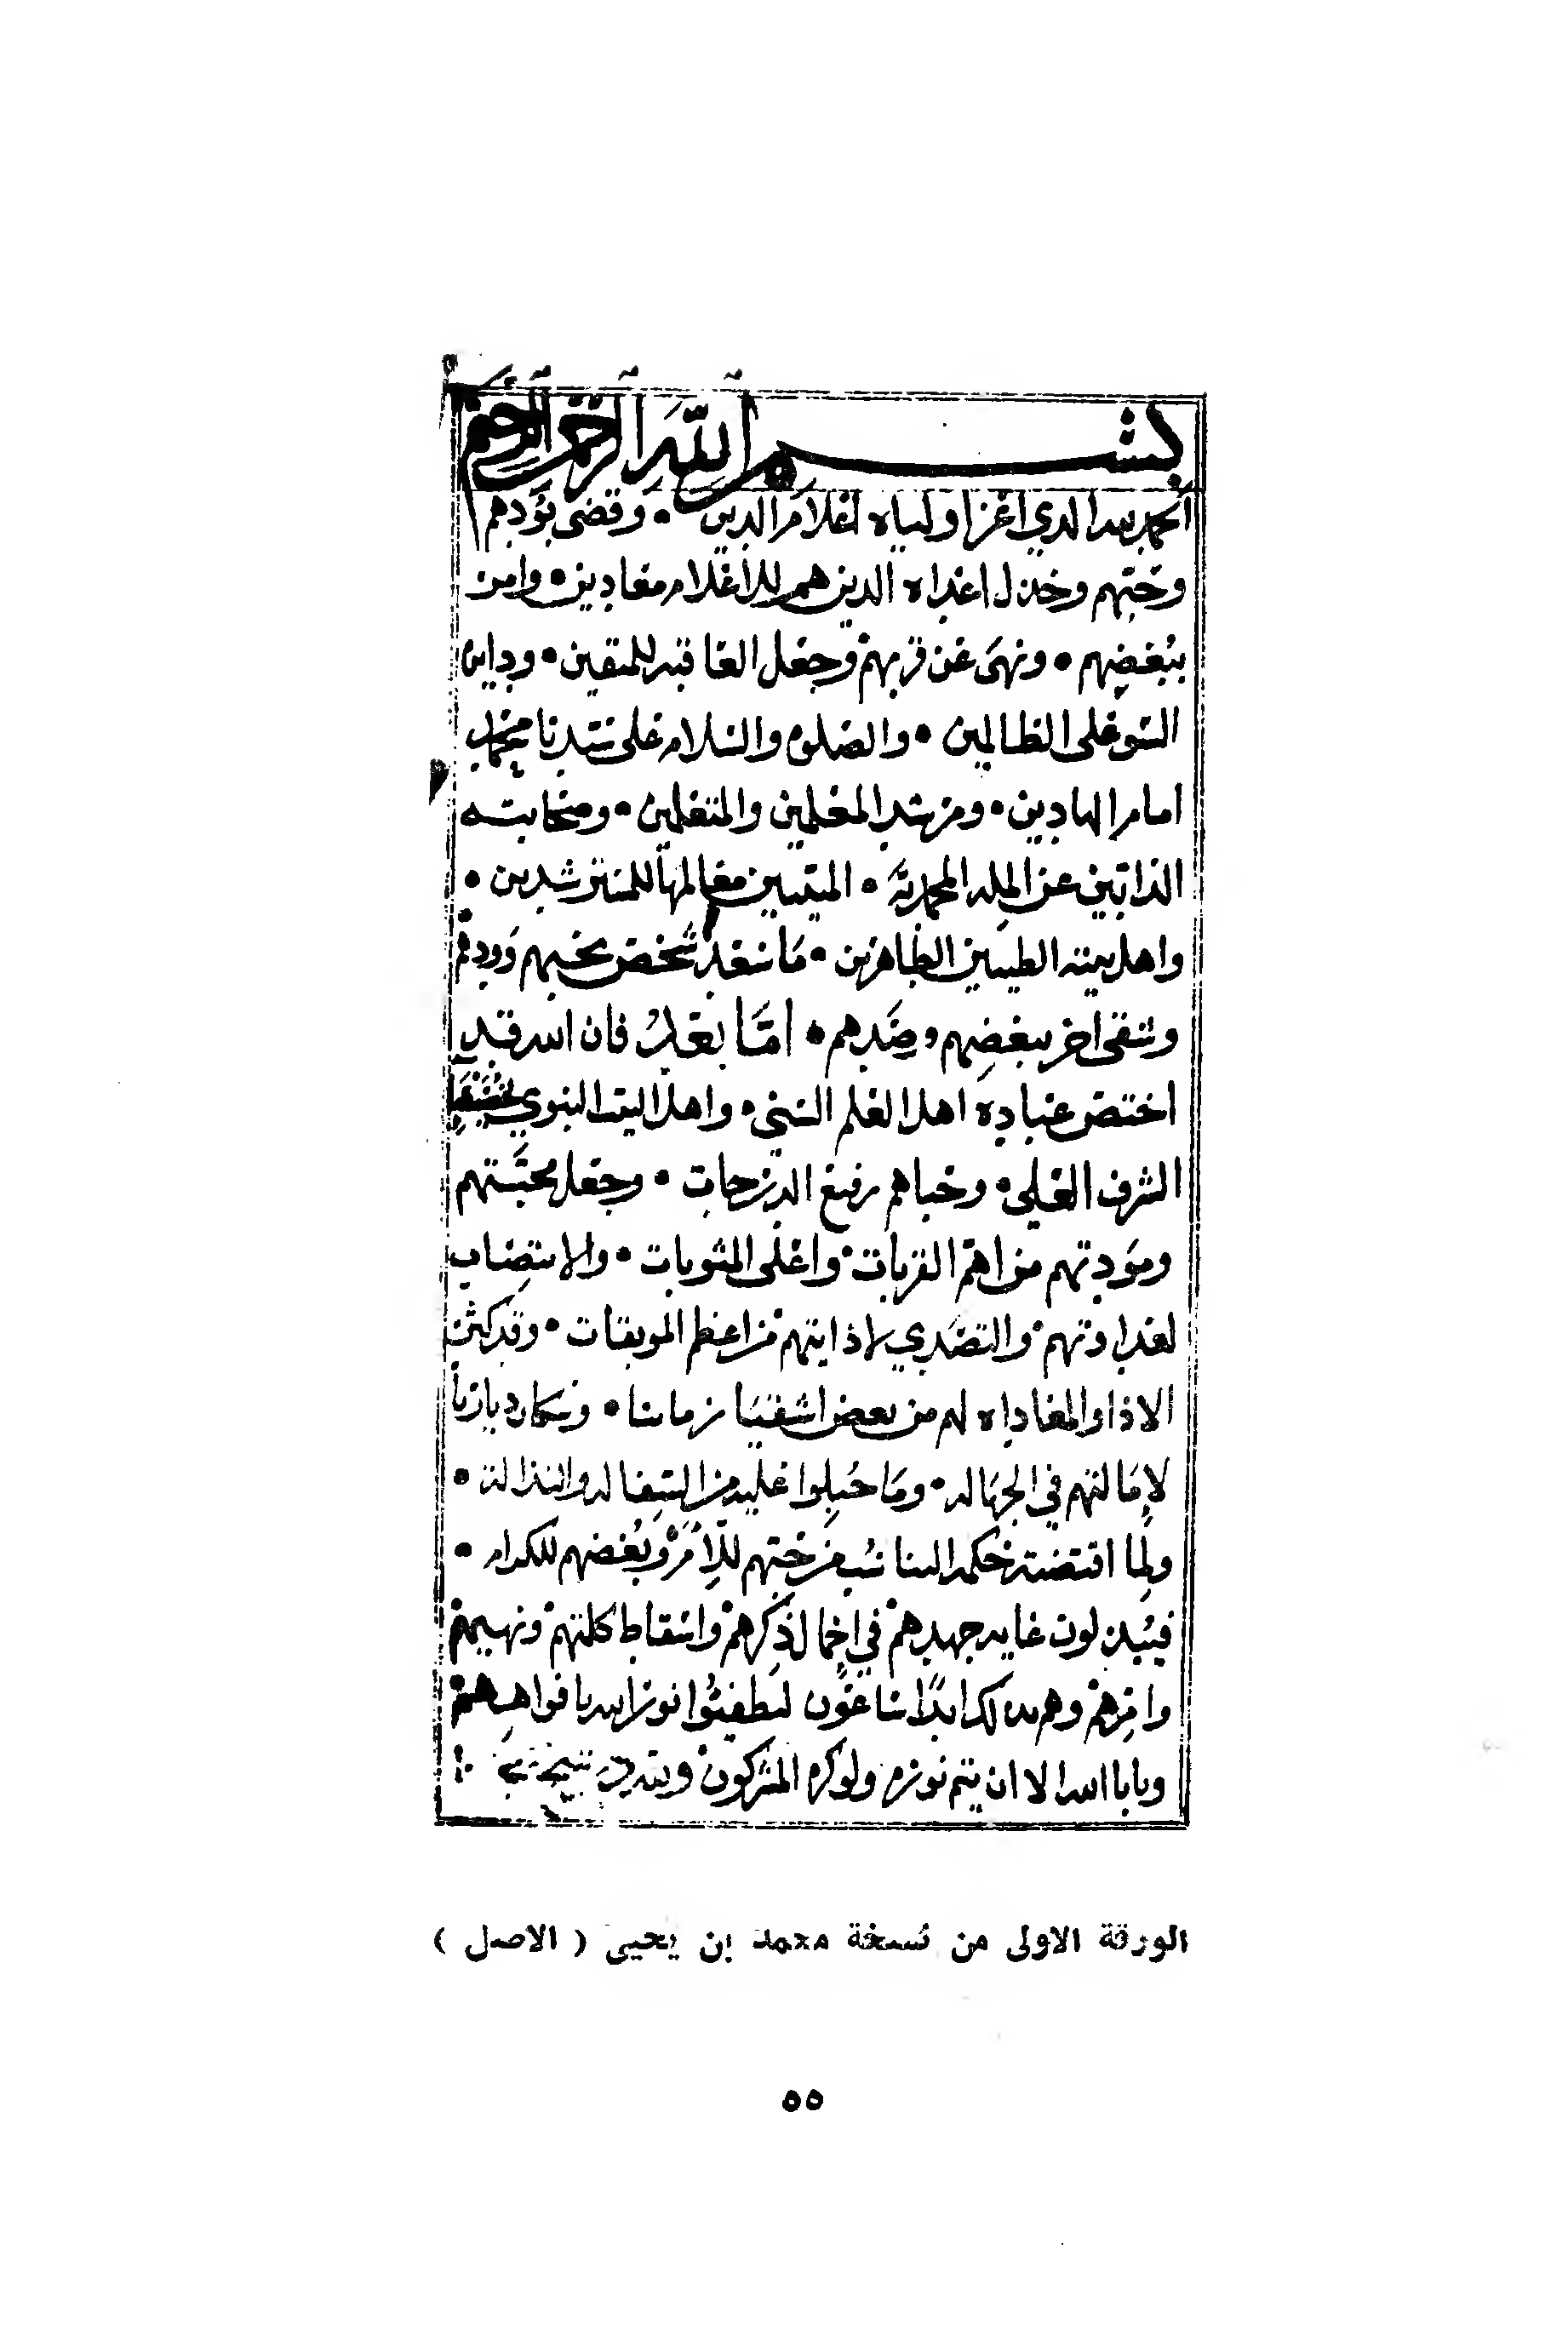 بسم الله الرحمن الرحيم
الحمد لله الذي اعز اولياه اعلام الدين • وقضى بودهم
وحبهم وخذل اعداه الذين هم للاعلام معادين • وامن
ببغضهم • ونهى عن قربهم وجعل العاقبه للمتقين • ودايره
السو على الظالمين • والصلوه والسلام على سيدنا محمد
امام الهادين • ومرشد المعلمين والمتعلمين • وصحابته
الذابين عن المله المحمدية • المبينين معالمها للمسترشدين •
واهل بيته الطيبين الطاهرين • ما سعد شخص بحبهم وودهم
وشقى اخر ببغضهم وضدهم • امّا بعد فان الله قد
اختص عباده اهل العلم السني • واهل البيت النبوي
الشرف العلي • وحباهم رفيع الدرجات • وجعل محبتهم
ومودتهم من اهم القربات • واعلى المثوبات • والانتصاب
لعداوتهم • والتصدي لاذايتهم من اعظم الموبقات • وقد كثرت
الاذا والمعاداه لهم من بعض اشقيا زماننا • وسكان ديارنا
لإمالتهم في الجهاله • وما جبلوا عليه من السفاله والنذاله •
ولما اقتضته حكمه الهنا حبتهم للأمر وبغضهم للكرام •
فيبذلون غايه جهدهم في إخمال ذكرهم واسقاط كلمتهم ونهيهم
وامرهم وهم ابدًا ساعون ليطفئوا نور الله بافواههم
ويابا الله الا ان يتم نوره ولو كره المشركون ولله در
الورقة الاولى من نسخة محمد بن يحيى ( الاصل )
٥٥